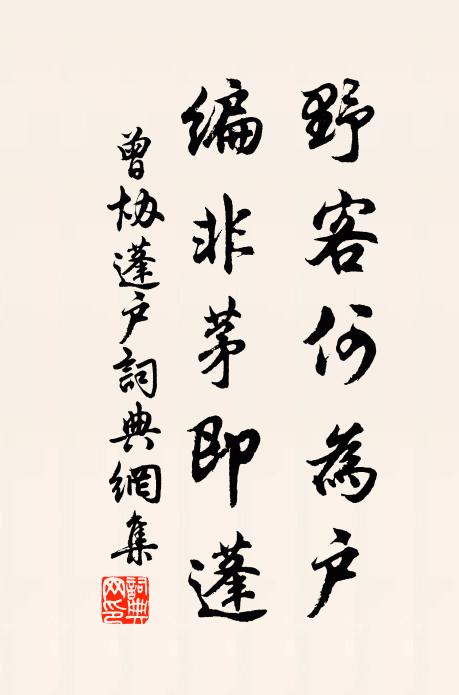 野客何為户
編非茅即蓬
曾協蓬户詞典網集
詞典網印